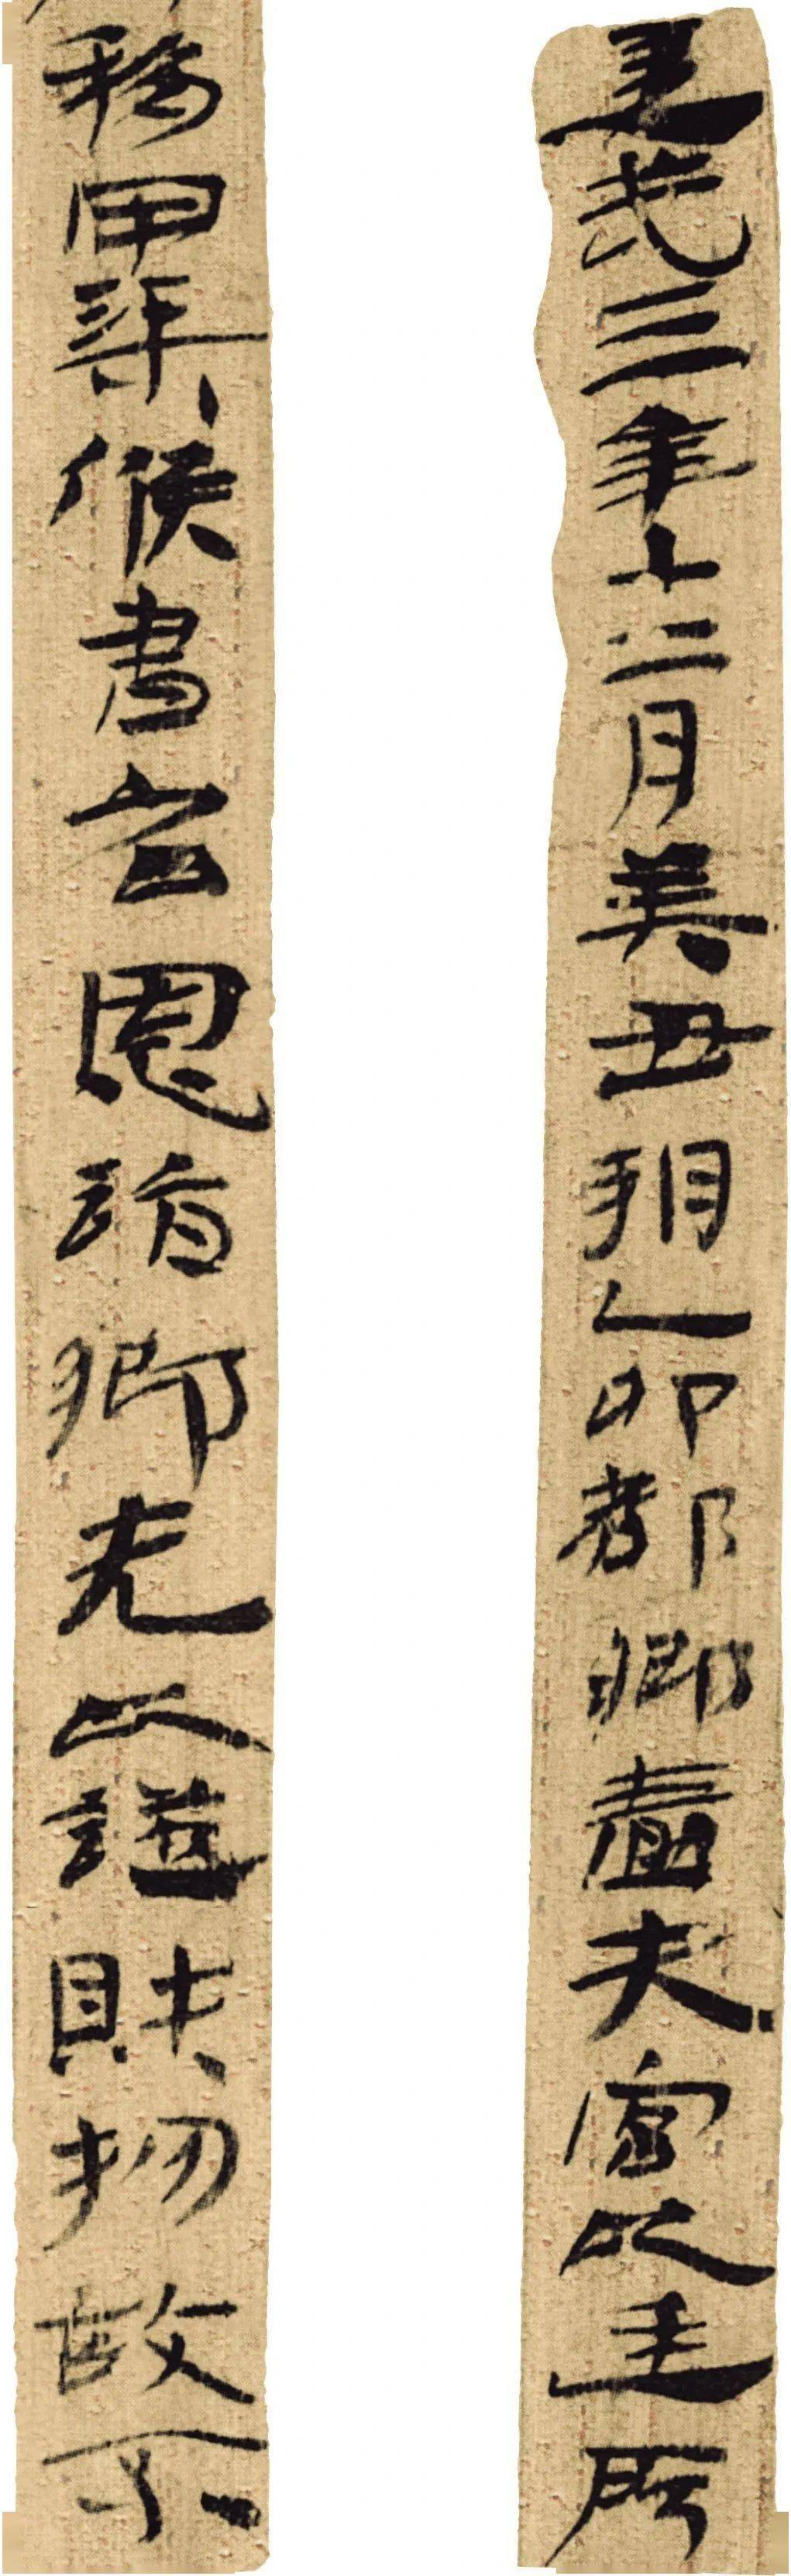 建武三年十二月癸丑朔乙卯都鄉嗇夫宮以廷所
移甲渠候書召恩詣鄉先以證財物故不